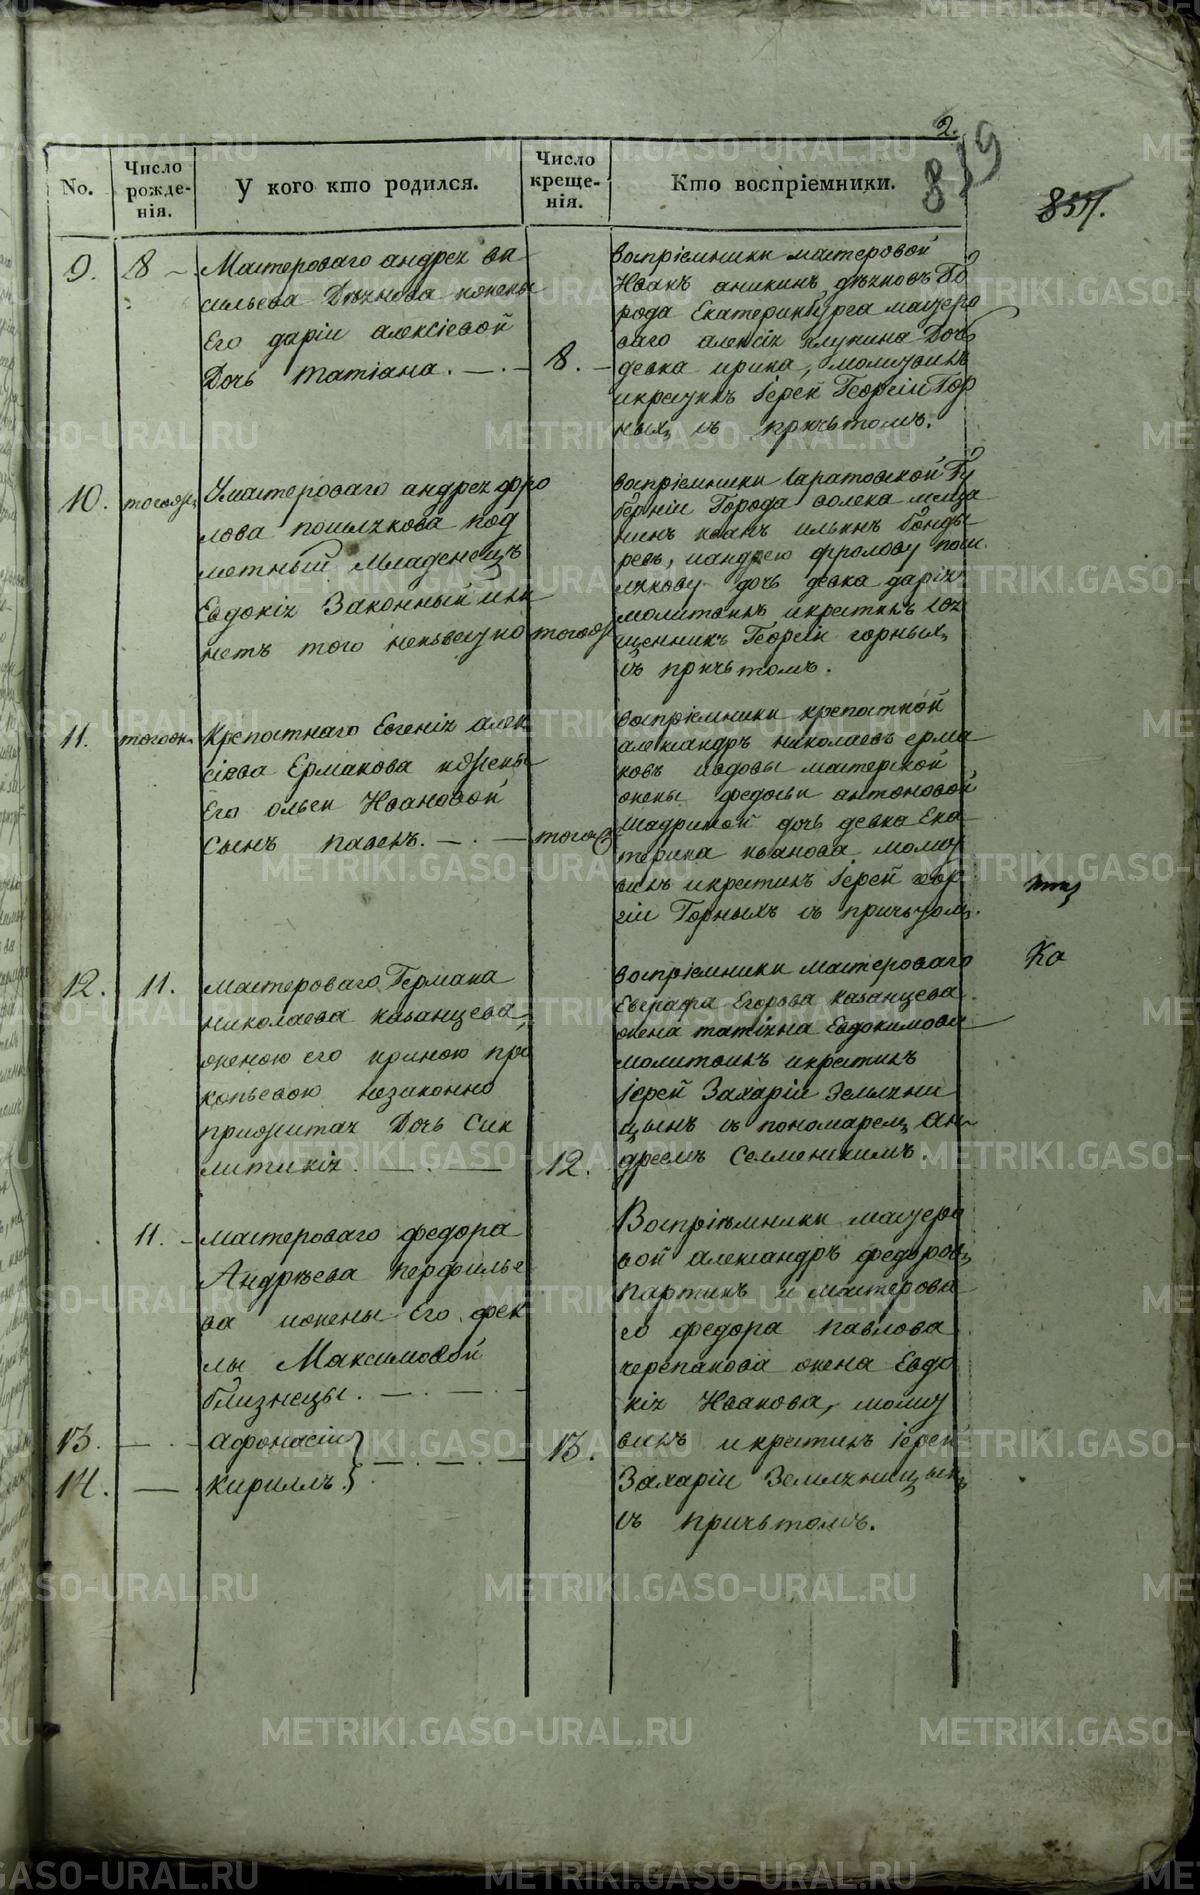 2.
819
855.
No.
Число рожде-нія.
У кого кто родился.
Число креще-нія.
Кто воспріемники.
9.
8
Мастероваго андрея ва
сильева Дѣчнова ижены
Его даріи алексіевой
Дочь татіана.
8.
воспріемники мастеровой
Иванъ аникинъ дѣчковъ Го
рода Екатеринбурга мастеро
ваго алексія Дочь
девка ирина, молитвилъ
икрестилъ Іерей Георгіи Гор
ныхъ съ причьтомъ.
10.
тогожъ
Умастероваго андрея фро
лова пошлякова под
метный Младенецъ
Евдокія Законный или
нетъ того неизвестно
тогожъ
воспріемники Саратовской Гу
берніи Города волска меща
нинъ иванъ ильинъ бонда
ревъ, иандрею фролову пош
лякову дочь девка дарія
молитвилъ икрестилъ свя
щенникъ Георгіи горныхъ
съ причьтомъ.
11.
тогожъ
Крепостнаго Евгенія алек
сіева Ермакова ижены
Его ольги Ивановой
Сынъ павелъ.
тогожъ
воспріемники крепостной
александръ николаевъ ерма
ковъ ивдовы мастерской
жены федосьи антоновой
Шадриной дочь девка Ека
терина иванова молит
вилъ икрестилъ Іерей геор
гіи Горныхъ съ причьтом.
Ка
12.
11.
мастероваго Германа
николаева казанцева,
женою его ириною про
копьевою незаконно
прижитая Дочь Сик
литикія.
12.
воспріемники мастероваго
Евграфа Егорова казанцева
жена татіана Евдокимова
молитвилъ икрестилъ
іерей Захаріи Землени
цынъ съ пономаремъ Ан-
дреемъ Селменскимъ.
11.
мастероваго федора
Андрѣева перфилье
ва ижены Его фек
лы Максимовой
близнецы.
13.
афонасіи
14.
кириллъ
13.
Воспріѣмники мастеро
вой александръ федоровъ
партинъ и мастерова
го федора павлова
черепанова жена Евдо
кія Иванова, молит
вилъ икрестилъ іерей
Захаріи Землѧницынъ
съ причьтомъ.
METRIKI.GASO-URAL.RU